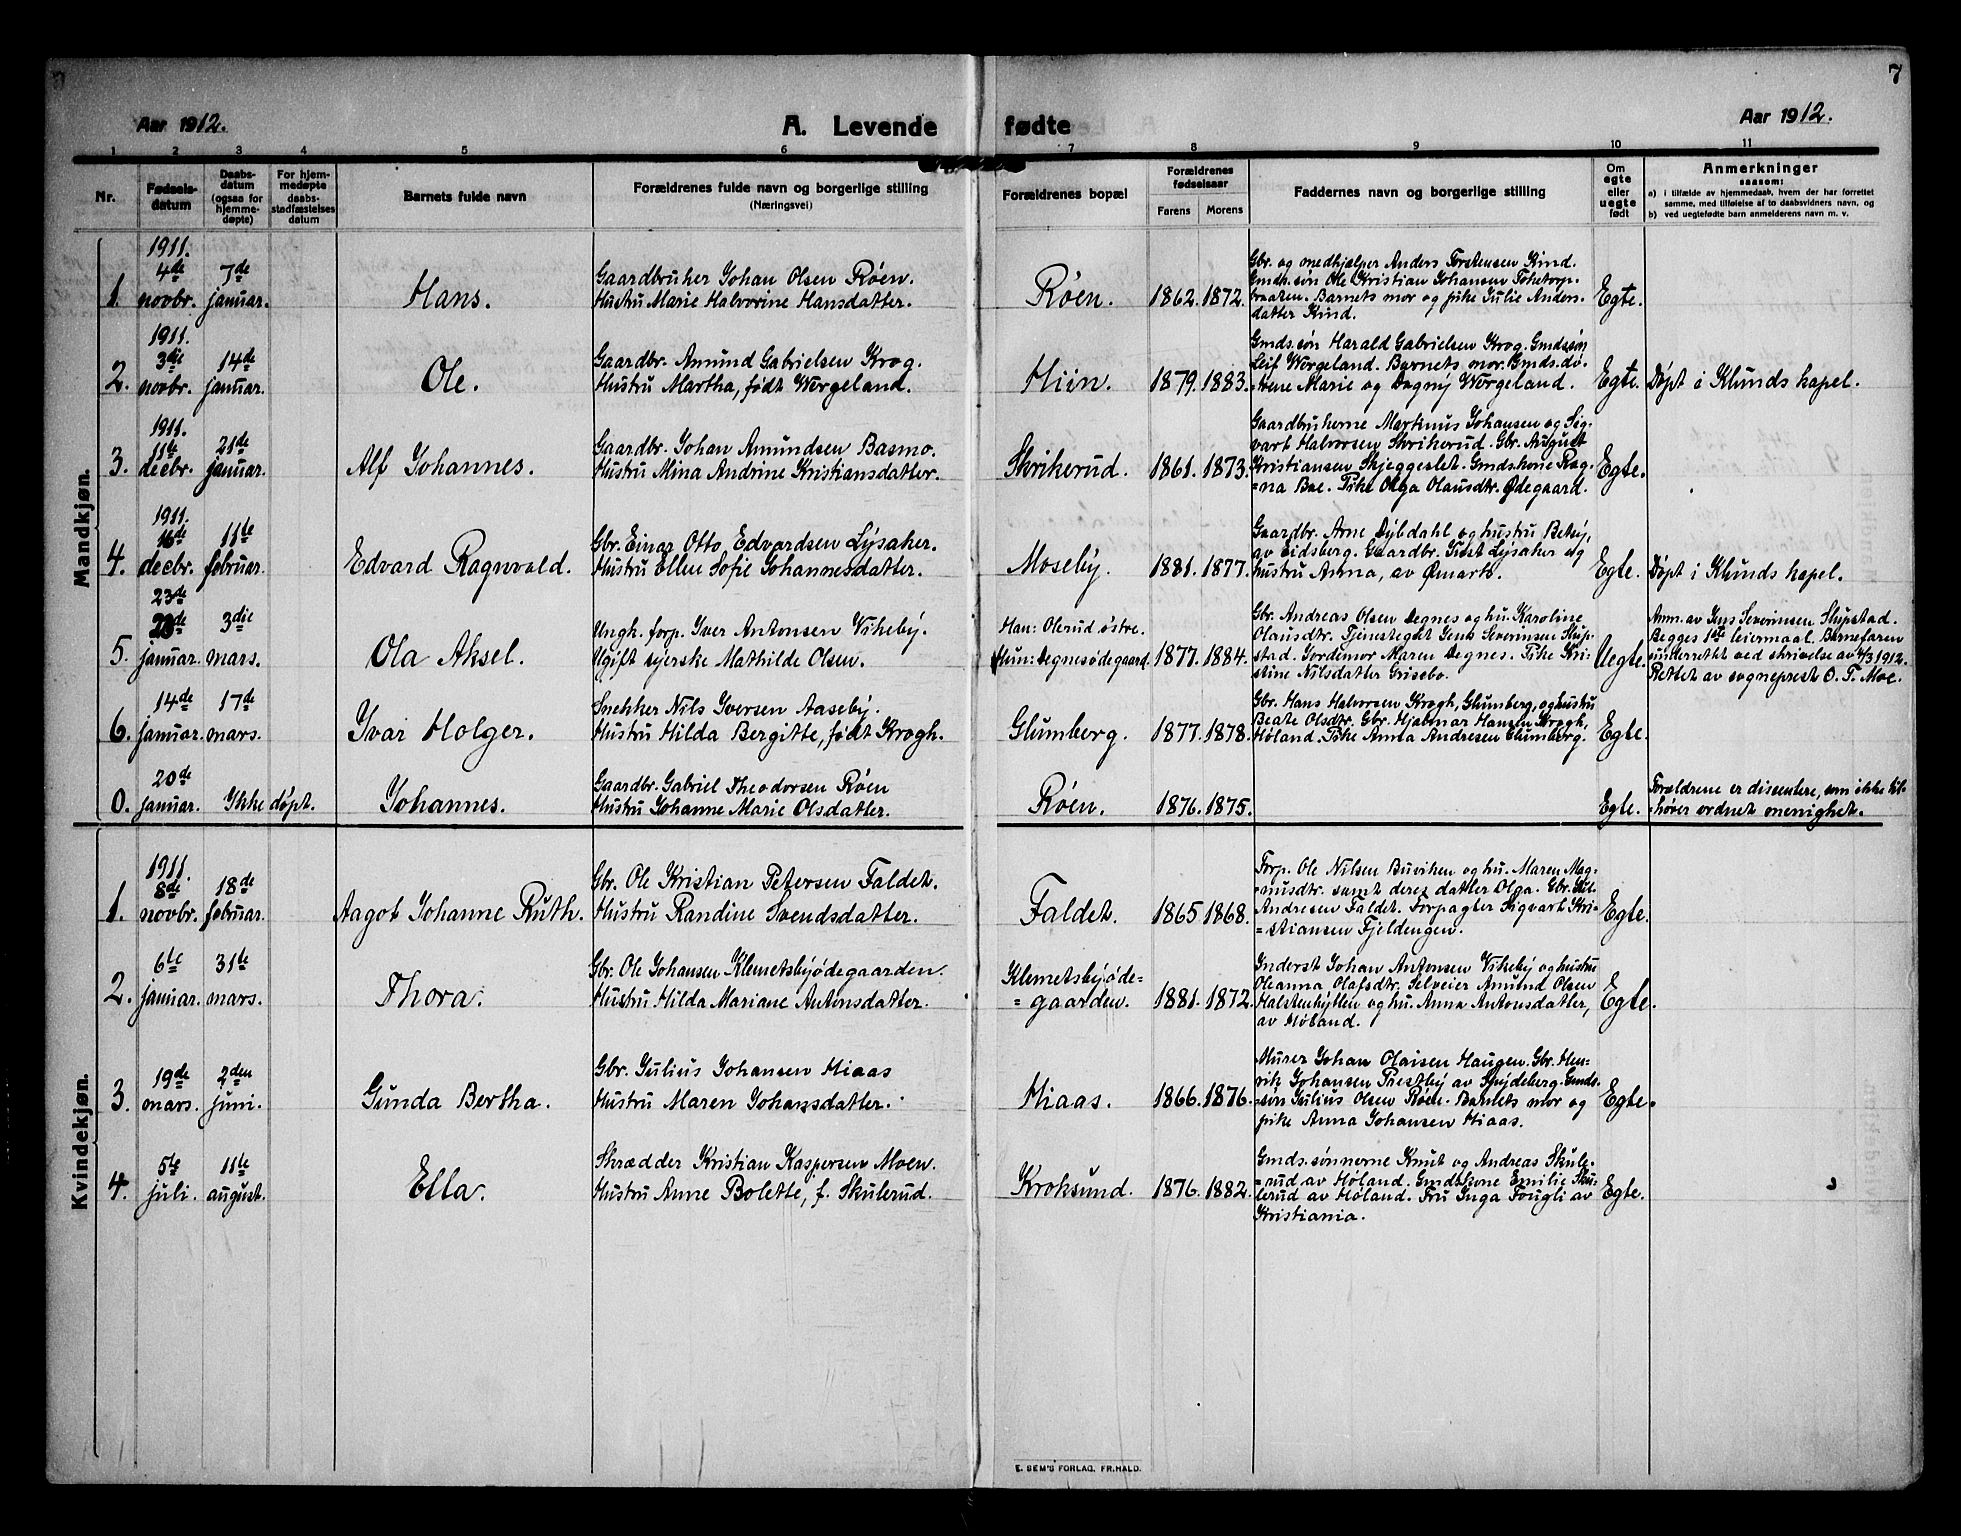 7
Aar 1912.
A. Levende fødte
Aar 1912.
1 2 3 4 5 6 7 8 9 10 11
Nr.
Fødsels-
datum
Daabs-
datum
(ogsaa for
hjemme-
døpte)
For hjem-
medøpte
daabs-
stadfæstelses
datum
Barnets fulde navn
Forældrenes fulde navn og borgerlige stilling
(Næringsvei)
Forældrenes bopæl
Forældrenes
fødselsaar
Farens Morens
Faddernes navn og borgerlige stilling
Om
egte
eller
uegte
født
Anmerkninger
saasom:
a) i tilfælde av hjemmedaab, hvem der har forrettet
samme, med tilføielse af to daabsvidners navn, og
b) ved uegtefødte barn anmelderens navn m. v.
Mandkjøn.
1911.
4de 7de
1. novbr. januar.
Hans.
Gaardbruker Johan Olsen Røen.
Hustru Marie Halvorine Hansdatter.
Røen. 1862. 1872.
Gbr. og medhjælper Anders Torstensen Kind.
Gmds.søn Ole Kristian Johansen Toketorp-
braaten. Barnets mor og pike Julie Anders-
datter Kind.
Egte.
1911.
3die 14de
2. novbr. januar.
Ole.
Gaardbr. Amund Gabrielsen Krog.
Hustru Martha, født Wergeland.
Hiin. 1879. 1883.
Gmds.søn Harald Gabrielsen Krog. Gmdssøn
Leif Wergeland. Barnets mor. Gmds.dø-
trene Marie og Dagny Wergeland.
Egte. Døpt i Klunds kapel.
1911.
11te 21de
3. decbr. januar.
Alf Johannes.
Gaardbr. Johan Amundsen Basmo.
Hustru Mina Andrine Kristiansdatter.
Skrikerud. 1861. 1873.
Gaardbrukerne Markus Johansen og Sig-
vart Halvorsen Skrikerud. Gbr. August
Kristiansen Skjeggeslet. Gmdskone Rag-
=na Boe. Pike Olga Olausdtr. Ødegaard.
Egte.
1911.
16de 11te
4. decbr. februar.
Edvard Ragnvald.
Gbr. Einar Otto Edvardsen Lysaker.
Hustru Ellen Sofie Johannesdatter.
Moseby. 1881. 1877.
Gaardbr. Arne Dyldahl og hustru Betsy,
av Eidsberg. Gaardbr. Just Lysaker og
hustru Anna, av Ømark.
Egte. Døpt i Klunds kapel.
23de
3die
5. januar. mars.
Ola Aksel.
Ungk. forp. Iver Antonsen Vikeby.
Ugift syerske Mathilde Olsen.
Han: Olerud østre.
Hun: Degnesødegaard. 1877. 1884.
Gbr. Andreas Olsen Degnes og hu. Karoline
Olausdtr. Tjenestegut Jens Severinsen Slup-
stad. Jordemor Maren Degnes. Pike Kri-
stine Nilsdatter Grisebo.
Uegte.
Anm. av Jens Severinsen Slupstad.
Begges 1ste leiermaal. Barnefaren
underrettet ved skrivelse av 4/3 1912.
Rettet av sogneprest O. F. Moe.
14de 17de
6. januar. mars.
Ivar Holger.
Snekker Nils Iversen Aaseby.
Hustru Hilda Bergitte, født Krogh.
Glumberg. 1877. 1878.
Gbr. Hans Halvorsen Krogh, Glumberg, og hustru
Beate Olsdtr. Gbr. Hjalmar Hansen Krogh,
Høland. Pike Anna Andresen Glumberg.
Egte.
20de
0. januar. Ikke døpt.
Johannes.
Gaardbr. Gabriel Theodorsen Røen
Hustru Johanne Marie Olsdatter.
Røen. 1876. 1875.
Egte.
Forældrene er dissentere, som ikke til-
=hører ordnet menighet.
Kvindekjøn.
1911.
8de 18de
1. novbr. februar.
Aagot Johanne Ruth.
Gbr. Ole Kristian Petersen Faldet.
Hustru Randine Svendsdatter.
Faldet. 1865. 1868.
Forp. Ole Nilsen Buviken og hu. Maren Mag-
=nusdtr. samt deres datter Olga. Gbr.
Andresen Faldet. Forpagter Sigvart Kri-
=stiansen Fjeldengen.
Egte.
6te 31te
2. januar. mars.
Thora.
Gbr. Ole Johansen Klemetsbyødegaarden.
Hustru Hilda Mariane Antonsdatter.
Klemetsbyøde-
=gaarden. 1881. 1872.
Inderst Johan Antonsen Vikeby og hustru
Oleanna Olafsdtr. Selveier Amund Olsen
Halstenhytten og hu. Anna Antonsdatter,
av Høland.
Egte.
19de 2den
3. mars. juni.
Gunda Bertha.
Gbr. Julius Johansen Hiaas
Hustru Maren Johansdatter.
Hiaas. 1866. 1876.
Murer Johan Olaisen Haugen. Gbr. Hen-
rik Johansen Prestby av Spydeberg. Gmds.
=søn Julius Olsen Røen. Barnets mor og
pike Anna Johansen Hiaas.
Egte.
5te 11te
4. juli. august.
Ella.
Skrædder Kristian Kaspersen Moen.
Hustru Anne Bolette, f. Skulerud.
Kroksund. 1876. 1882.
Gmds.sønnerne Knut og Andreas Skule-
=rud av Høland. Gmdskone Emilie Sku-
lerud av Høland. Fru Inga Fougli av
Kristiania.
Egte.
E. SEM'S FORLAG, FR.HALD.